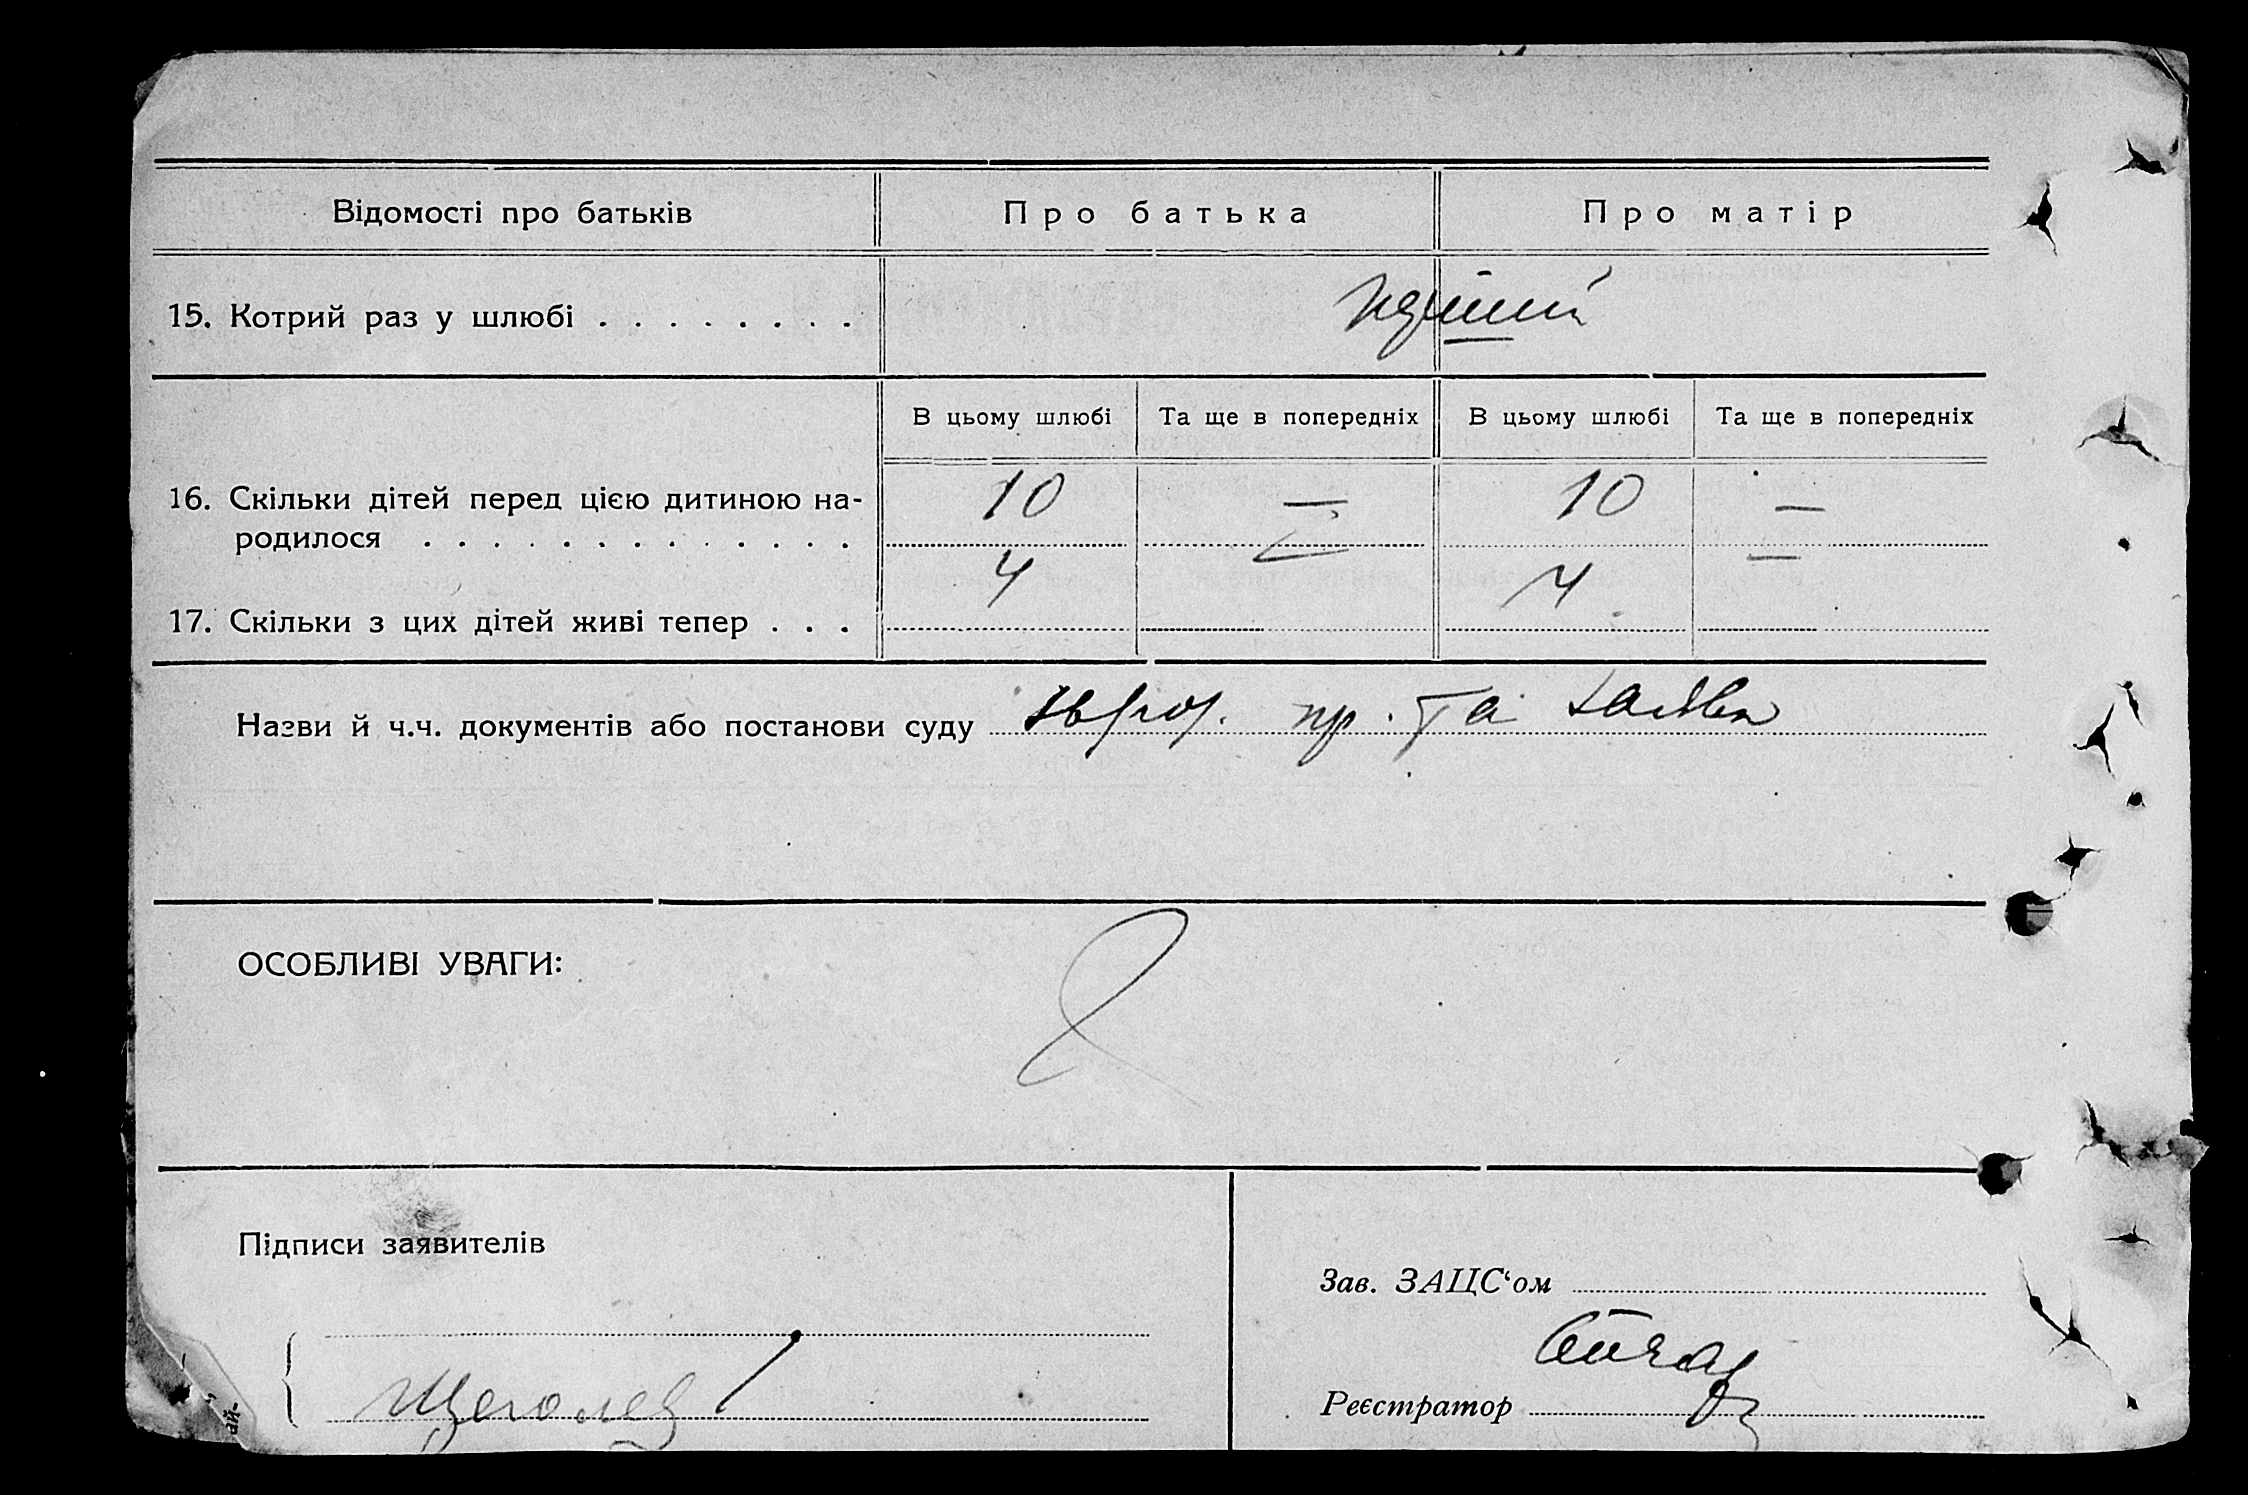 Відомості про батьків
Про батька
Про матір
15. Котрий раз у шлюбі . . . . . . . .
В цьому шлюбі
Та ще в попередніх
В цьому шлюбі
Та ще в попередніх
16. Скільки дітей перед цією дитиною на-
родилося . . . . . . . . . . . . .
10
—
10
—
17. Скільки з цих дітей живі тепер . . .
4
—
4
—
Назви й ч.ч. документів або постанови суду пр. та заява
ОСОБЛИВІ УВАГИ:
Підписи заявителів
Щеголев
Зав. ЗАЦС‘ом
Реєстратор